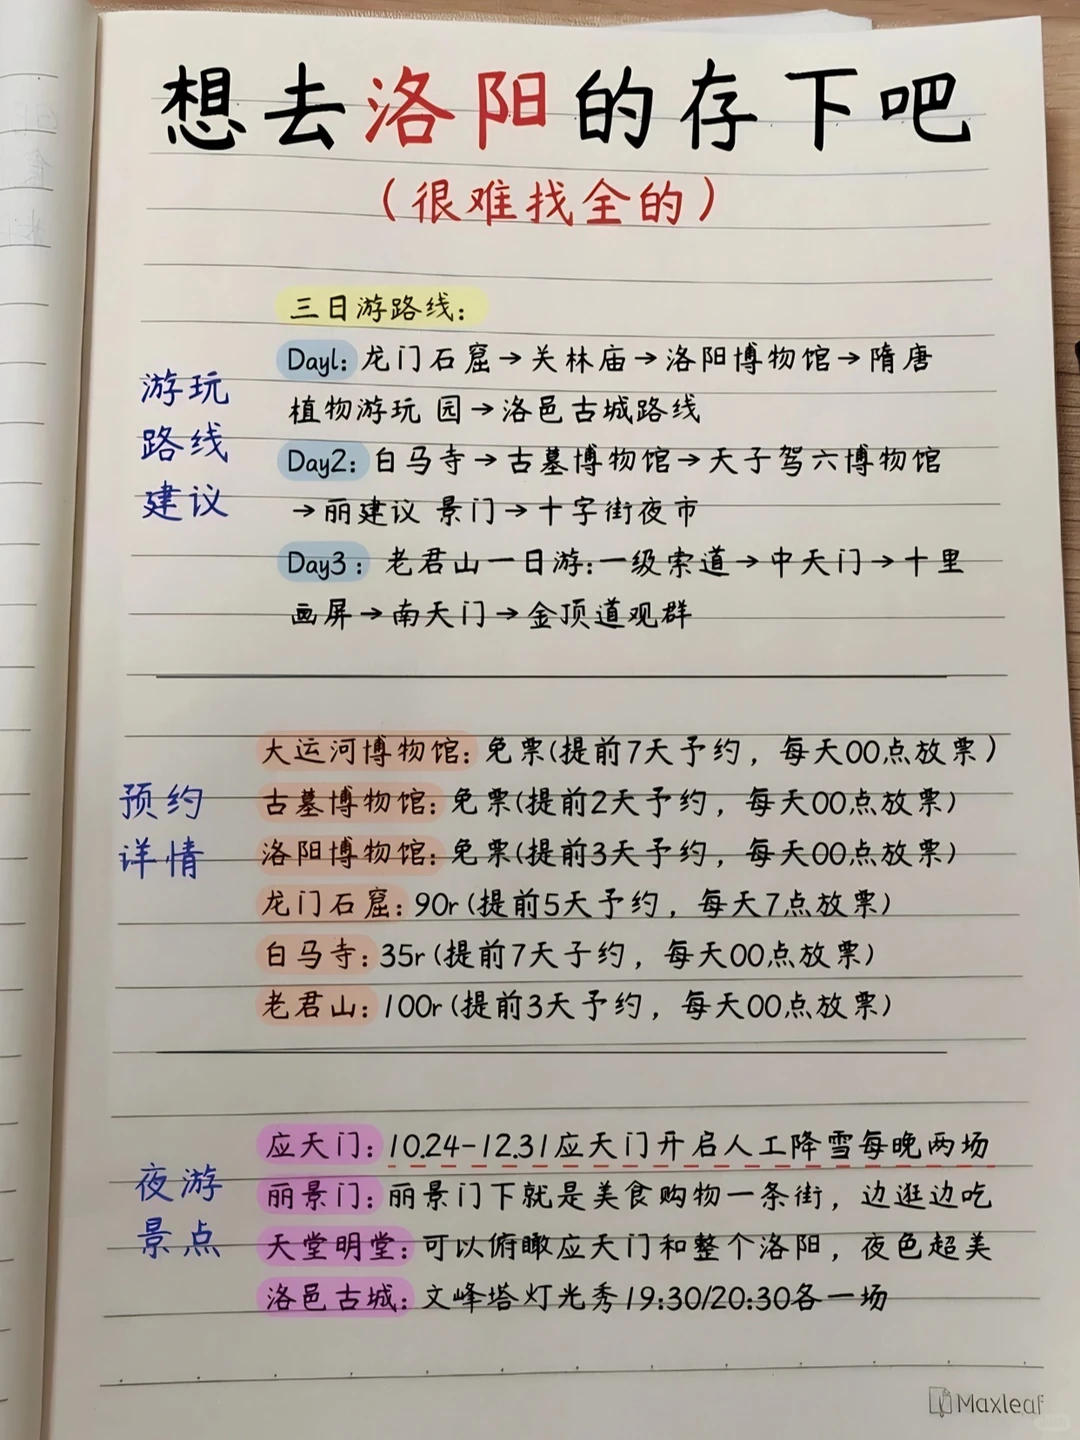 想去洛阳的存下吧
（很难找全的）
三日游路线：
Day1：龙门石窟→关林庙→洛阳博物馆→隋唐
植物游玩 园→洛邑古城路线
Day2：白马寺→古墓博物馆→天子驾六博物馆
→丽建议 景门→十字街夜市
Day3：老君山一日游：一级索道→中天门→十里
画屏→南天门→金顶道观群
游玩
路线
建议
大运河博物馆：免票（提前7天予约，每天00点放票）
古墓博物馆：免票（提前2天予约，每天00点放票）
洛阳博物馆：免票（提前3天予约，每天00点放票）
龙门石窟：90r（提前5天予约，每天7点放票）
白马寺：35r（提前7天子约，每天00点放票）
老君山：100r（提前3天予约，每天00点放票）
预约
详情
应天门：10.24-12.31应天门开启人工降雪每晚两场
丽景门：丽景门下就是美食购物一条街，边逛边吃
天堂明堂：可以俯瞰应天门和整个洛阳，夜色超美
洛邑古城：文峰塔灯光秀19:30/20:30各一场
夜游
景点
Maxleaf